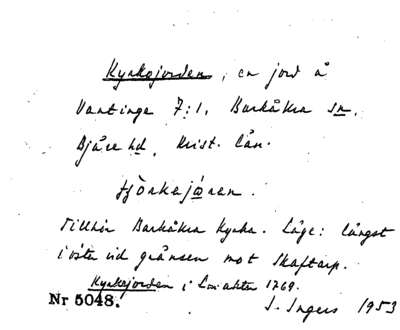 Kyrkojorden, en jord å
Vantinge 7:1, Barkåkra sn,
Bjäre hd, Krist. län.
Tillhör Barkåkra kyrka. Läge: längst
i öster vid gränsen mot Skaftarp.
Kyrkojorden i Lmakten 1769.
Nr 5048. I. Ingers 1953